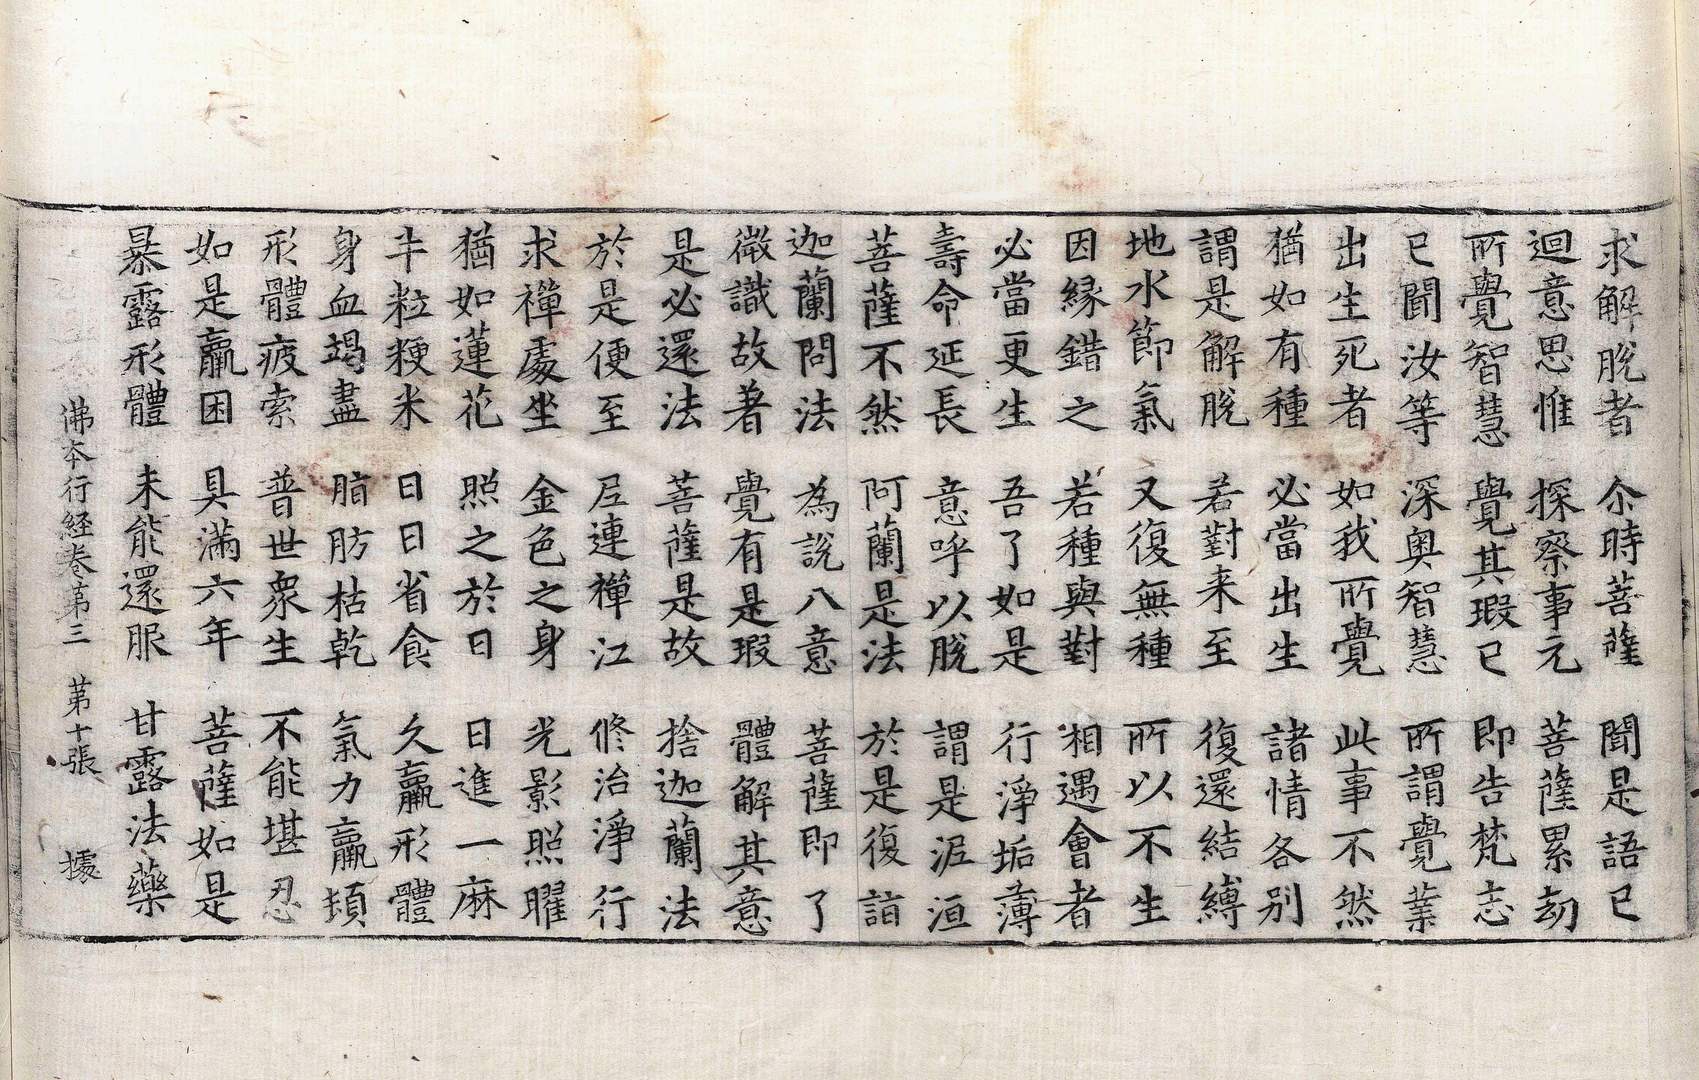 求解脫者　尒時菩薩　聞是語已
迴意思惟　探察事元　菩薩累劫
所覺智慧　覺其瑕已　即告梵志
已聞汝等　深奧智慧　所謂覺業
出生死者　如我所覺　此事不然
猶如有種　必當出生　諸情各別
謂是解脫　若對来至　復還結縛
地水節氣　又復無種　所以不生
因緣錯之　若種與對　相遇會者
必當更生　吾了如是　行淨垢薄
壽命延長　意呼以脫　謂是泥洹
菩薩不然　阿蘭是法　於是復詣
迦蘭問法　為說八意　菩薩即了
微識故著　覺有是瑕　體解其意
是必還法　菩薩是故　捨迦蘭法
於是便至　尼連禪江　修治淨行
求禪處坐　金色之身　光影照曜
猶如蓮花　照之於日　日進一麻
半粒粳米　日日省食　久羸形體
身血竭盡　脂肪枯乾　氣力羸頓
形體疲索　普世衆生　不能堪忍
如是羸困　具滿六年　菩薩如是
暴露形體　未能還服　甘露法藥
佛本行経卷第三　第十張　㯫